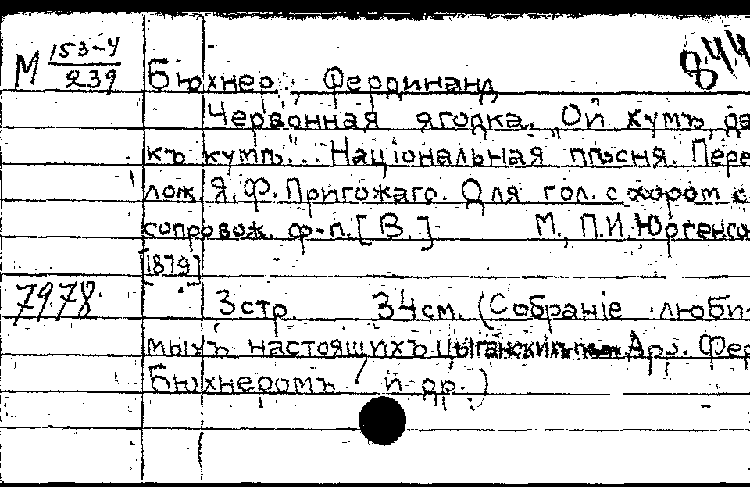 М 153-4/239 Бюхнер, Фердинанд 844
Червонная ягодка. „Ой кумъ, да
къ кумѣ". Національная пѣсня. Пере
лож. Я. Ф. Пригожаго. Для гол. с хором с
сопровож. ф-п. [В.] М., П.И. Юргенсо
[1879]
7978 3 стр. 34 см. (Собраніе люби-
мыхъ настоящихъ цыганскихъ Арр. Фер
Бюхнеромъ и др.)